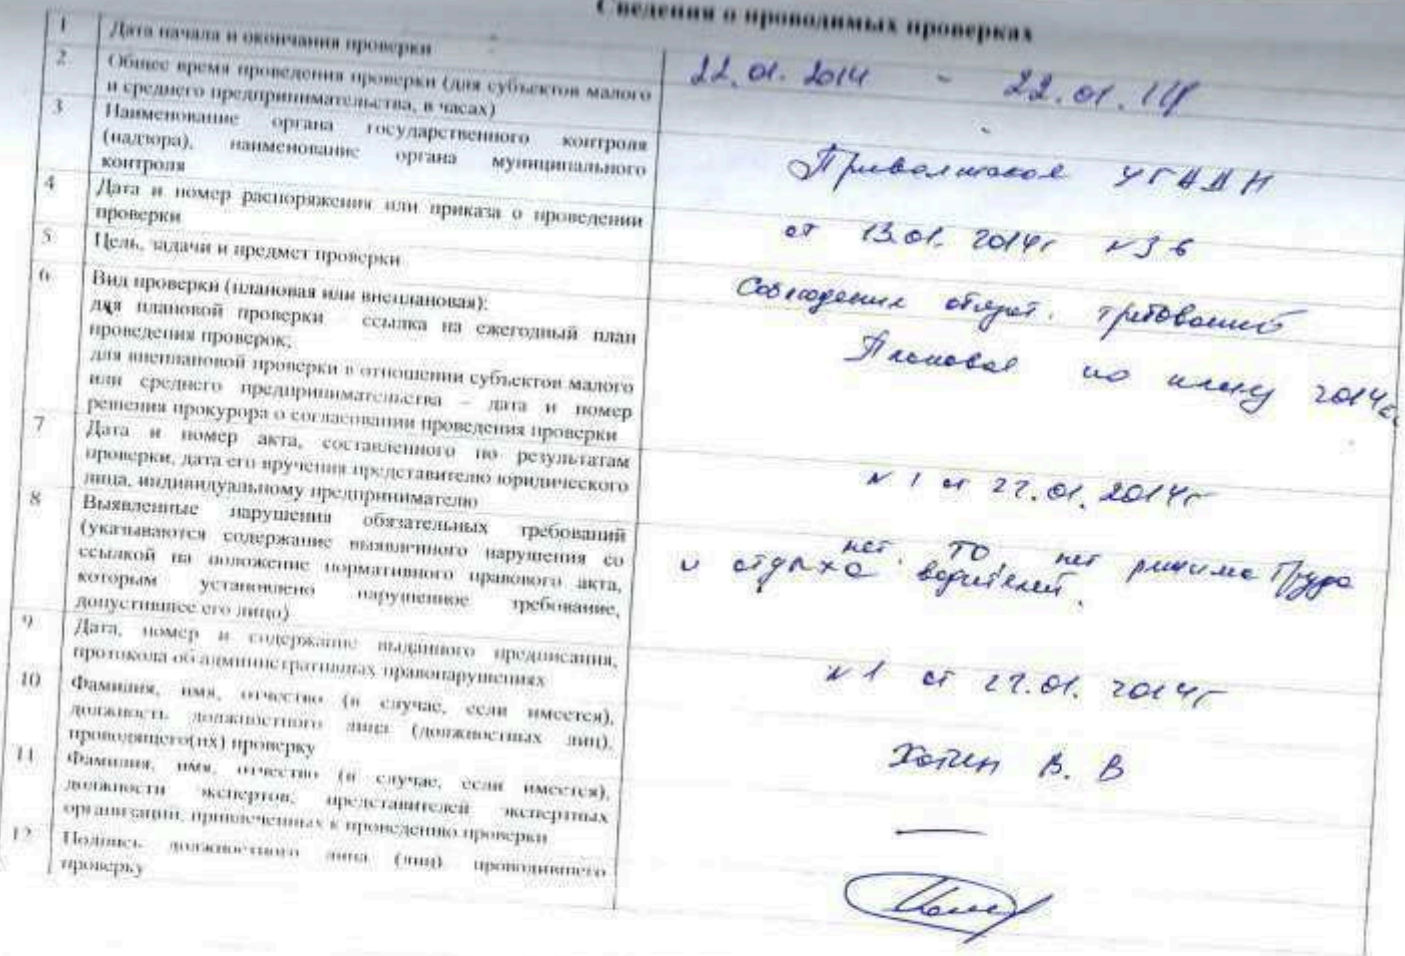 Сведения о проводимых проверках
1 Дата начала и окончания проверки
22.01.2014 - 22.01.14
2 Общее время проведения проверки (для субъектов малого
и среднего предпринимательства, в часах)
-
3 Наименование органа государственного контроля
(надзора), наименование органа муниципального
контроля
Приволжское УГАДН
4 Дата и номер распоряжения или приказа о проведении
проверки
от 13.01.2014г №36
5 Цель, задачи и предмет проверки
Соблюдения обязат. требований
6 Вид проверки (плановая или внеплановая):
для плановой проверки ссылка на ежегодный план
проведения проверок;
для внеплановой проверки в отношении субъектов малого
или среднего предпринимательства – дата и номер
решения прокурора о согласовании проведения проверки
Плановая по плану 2014г.
7 Дата и номер акта, составленного по результатам
проверки, дата его вручения представителю юридического
лица, индивидуальному предпринимателю
№ 1 от 22.01.2014г
8 Выявленные нарушения обязательных требований
(указываются содержание выявленного нарушения со
ссылкой на положение нормативного правового акта,
которым установлено нарушенное требование,
допустившее его лицо)
нет ТО нет режима Труда
и отдыха водителей.
9 Дата, номер и содержание выданного предписания,
протокола об административных правонарушениях
№ 1 от 22.01.2014г
10 Фамилия, имя, отчество (в случае, если имеется),
должность должностного лица (должностных лиц),
проводящего(их) проверку
В. В
11 Фамилия, имя, отчество (в случае, если имеется),
должности экспертов, представителей экспертных
организаций, привлеченных к проведению проверки
—
12 Подпись должностного лица (лиц) проводившего
проверку